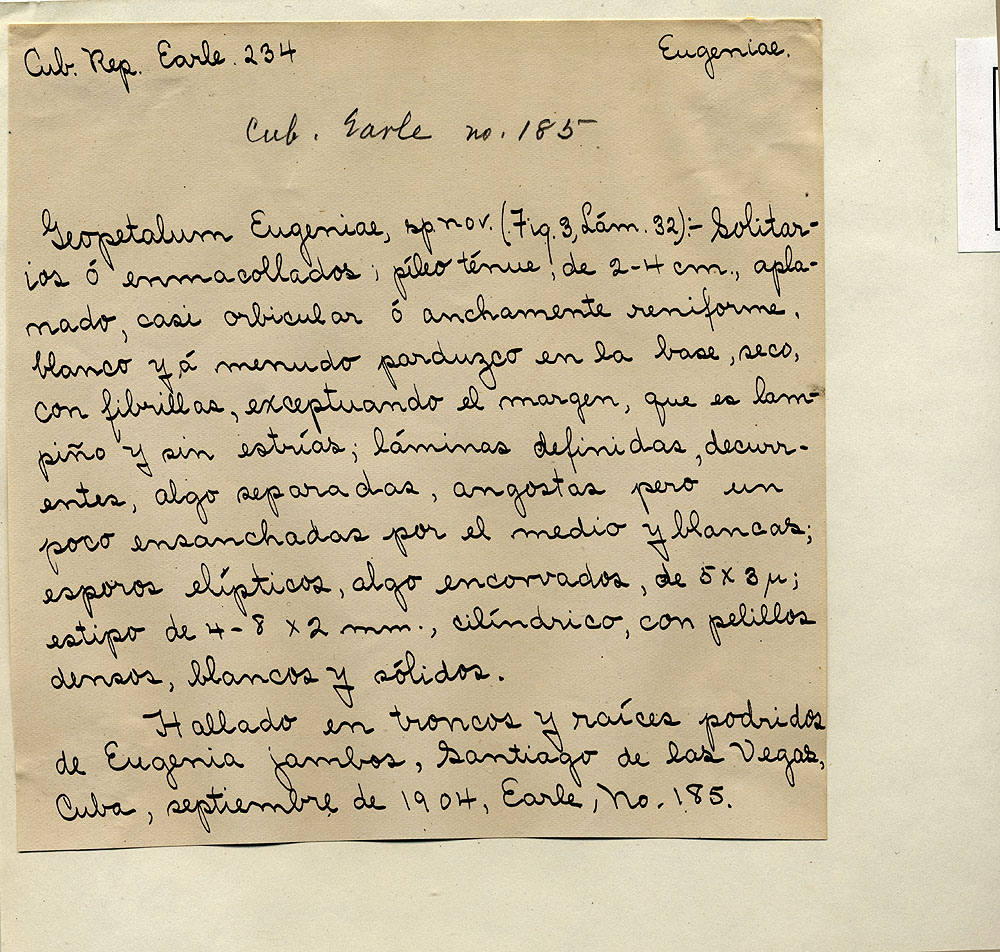 Cub. Rep. Earle. 234 Eugeniae.
Cub. Earle no. 185
Geopetalum Eugeniae, sp nov. (Fig. 3, Lám. 32):- Solitar-
ios ó enmacollados; píleo ténue, de 2-4 cm., apla-
nado, casi orbicular ó anchamente reniforme,
blanco y,á menudo parduzco en la base, seco,
con fibrillas, exceptuando el margen, que es lam-
piño y sin estrías; láminas definidas, decurr-
entes, algo separadas, angostas pero un
poco ensanchadas por el medio y blancas;
esporos elípticos, algo encorvados, de 5 x 3 µ;
estipo de 4-8 x 2 mm., cilíndrico, con pelillos
densos, blancos y sólidos.
Hallado en troncos y raíces podridos
de Eugenia jambos, Santiago de las Vegas,
Cuba, septiembre de 1904, Earle, No. 185.